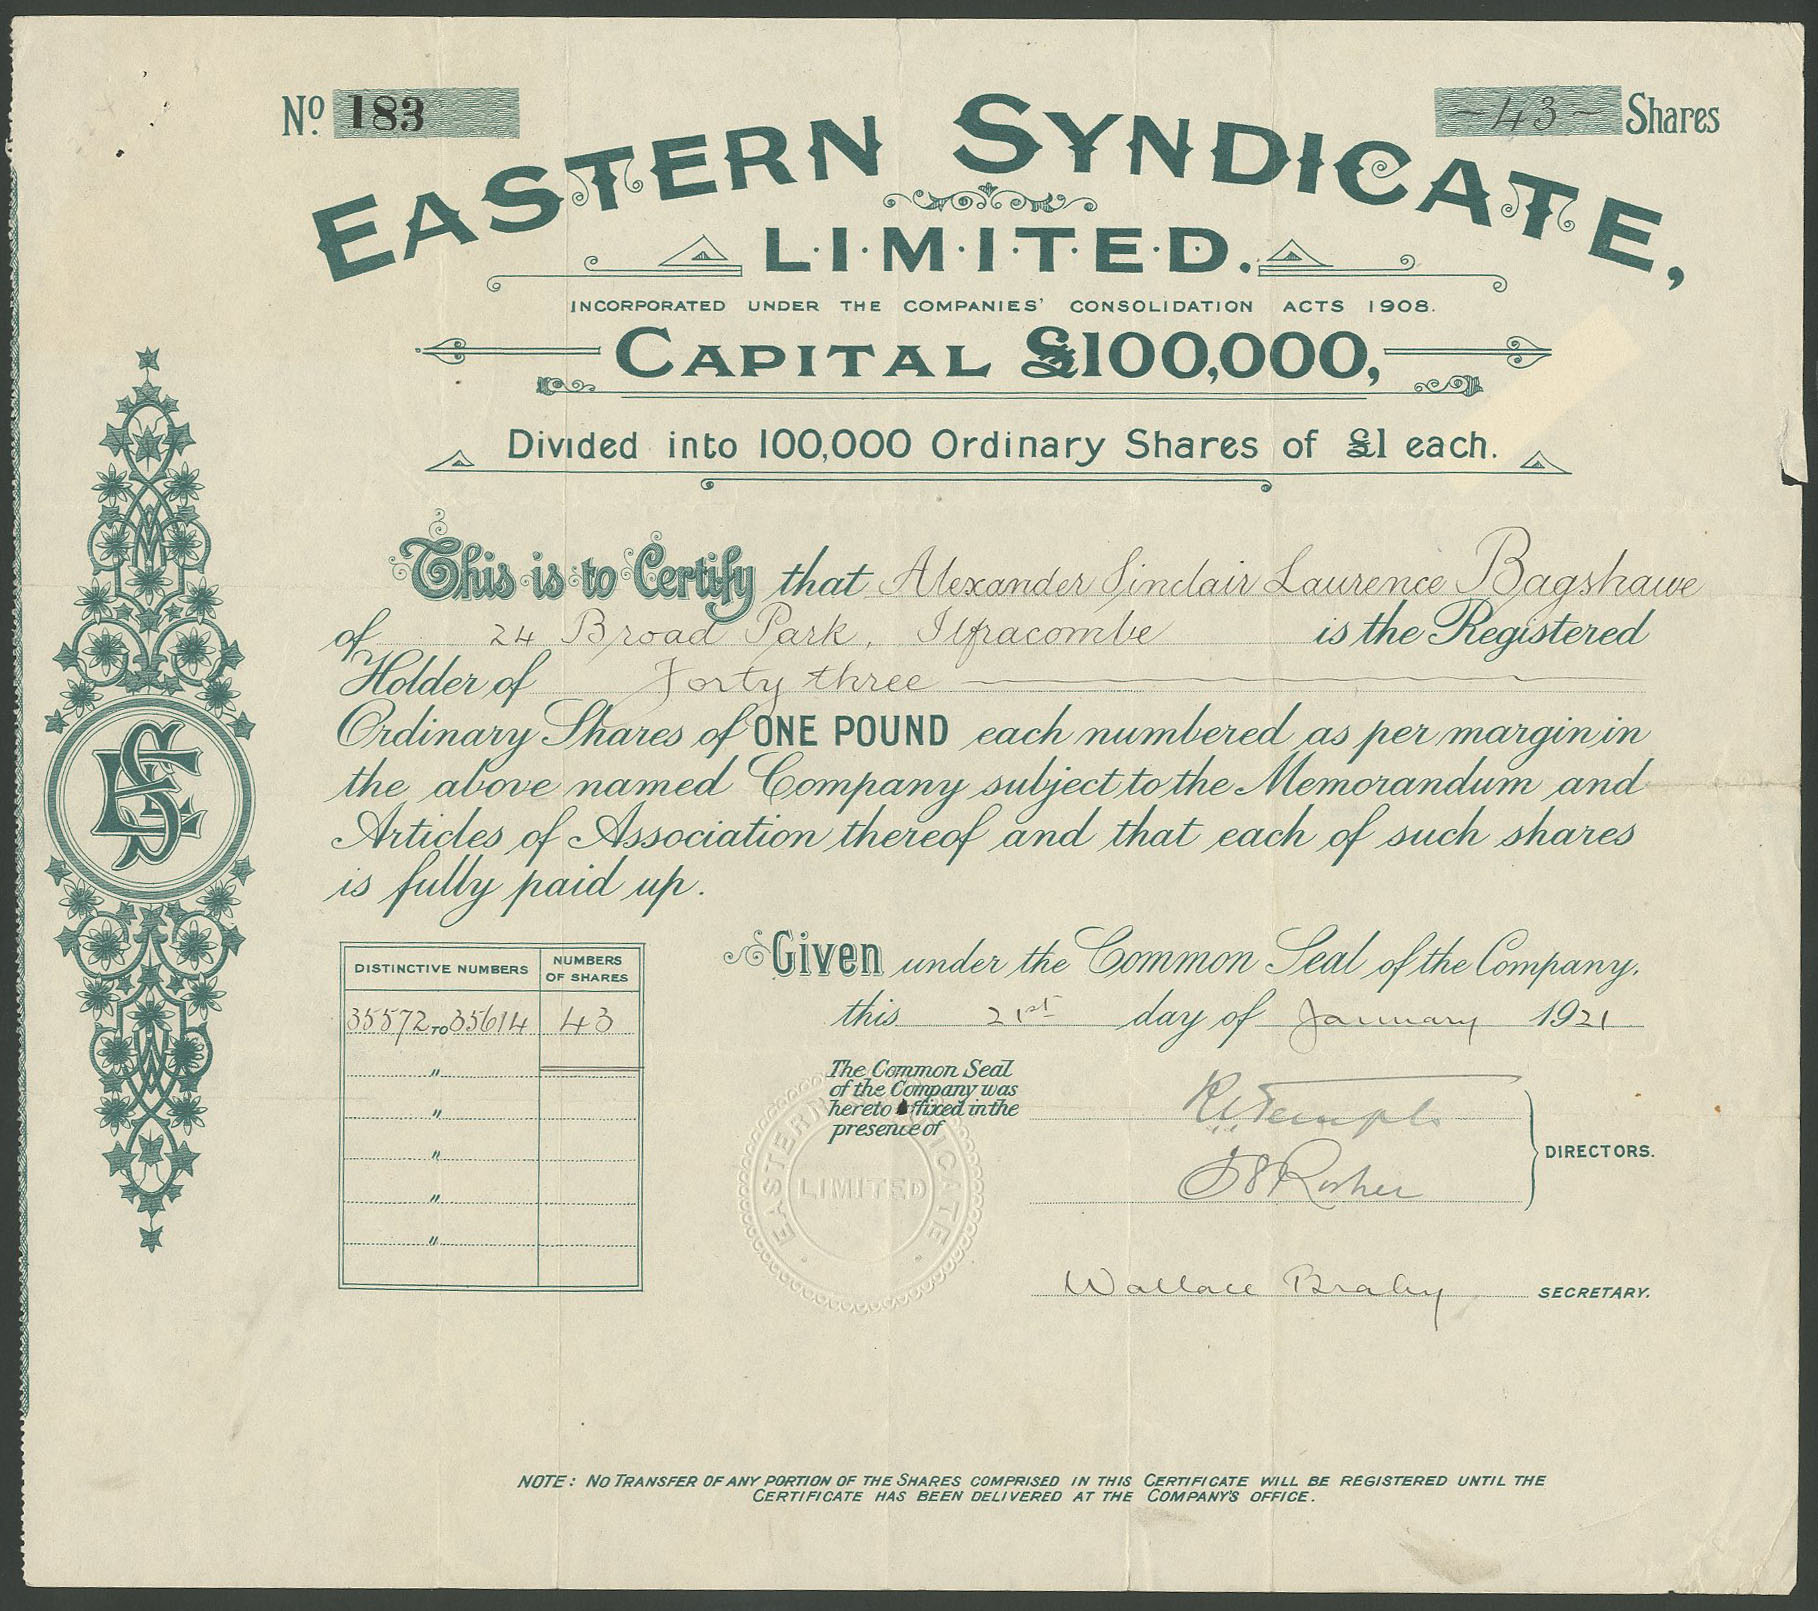 No. 183
~ 43 ~ Shares
EASTERN SYNDICATE,
L·I·M·I·T·E·D.
INCORPORATED UNDER THE COMPANIES' CONSOLIDATION ACTS 1908.
CAPITAL £100,000,
Divided into 100,000 Ordinary Shares of £1 each.
This is to Certify that Alexander Sinclair Laurence Bagshawe
of 24 Broad Park, Ilfracombe is the Registered
Holder of Forty three
Ordinary Shares of ONE POUND each numbered as per margin in
the above named Company subject to the Memorandum and
Articles of Association thereof and that each of such shares
is fully paid up.
ES
DISTINCTIVE NUMBERS NUMBERS OF SHARES
35572 TO 35614 43
"
"
"
"
"
Given under the Common Seal of the Company,
this 21st day of January 1921
The Common Seal
of the Company was
hereto affixed in the
presence of
EASTERN SYNDICATE
LIMITED
DIRECTORS.
Wallace Braby SECRETARY.
NOTE: NO TRANSFER OF ANY PORTION OF THE SHARES COMPRISED IN THIS CERTIFICATE WILL BE REGISTERED UNTIL THE
CERTIFICATE HAS BEEN DELIVERED AT THE COMPANY'S OFFICE.